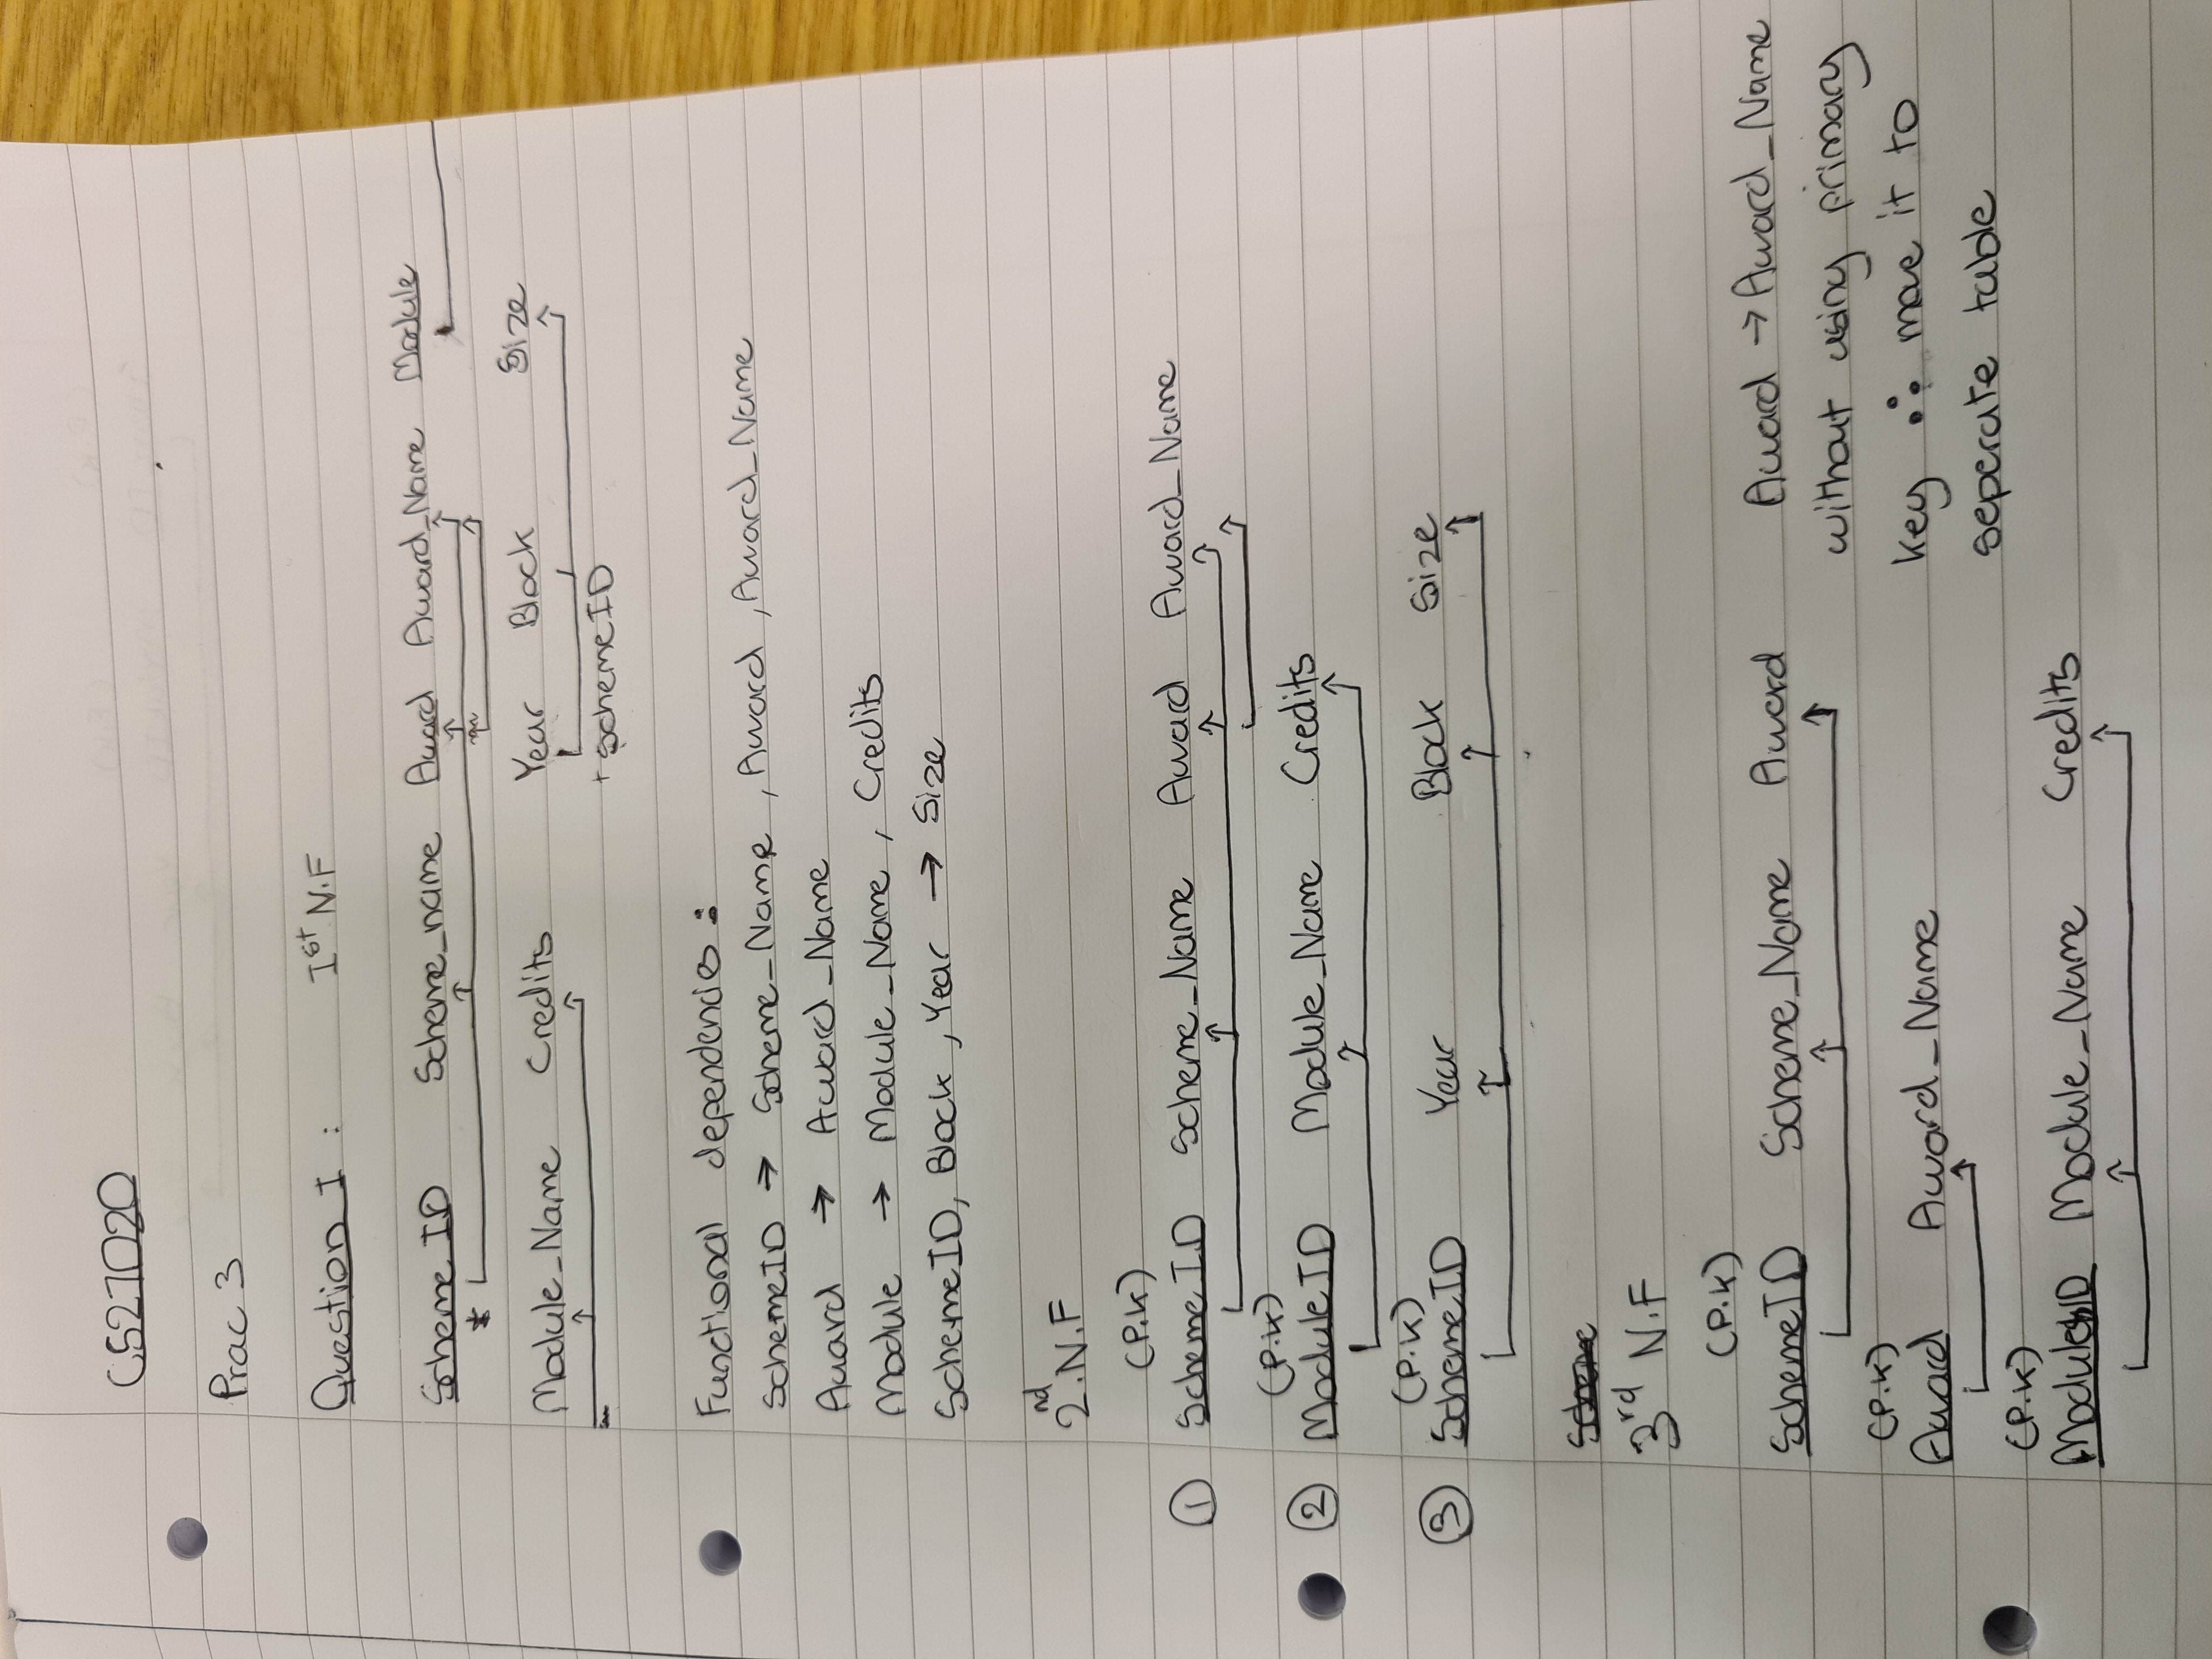 CS27020
Prac 3
Question I : Ist N.F
Scheme ID Scheme_name Award Award_Name Module
*
Module_Name Credits Year Block Size
+ SchemeID
Functional dependencies :
SchemeID → Scheme_Name , Award , Award_Name
Award → Award_Name
Module → Module_Name , Credits
SchemeID, Block , Year → Size
2nd.N.F
(P.K)
① Scheme ID Scheme_Name Award Award_Name
(P.K)
② ModuleID Module_Name Credits
(P.K)
③ SchemeID Year Block Size
Scheme
3rd N.F
(P.K)
SchemeID Scheme_Name Award Award → Award_Name
without using primary
(P.K)
Award Award_Name key ∴ move it to
seperate table
(P.K)
ModuleID Module_Name Credits